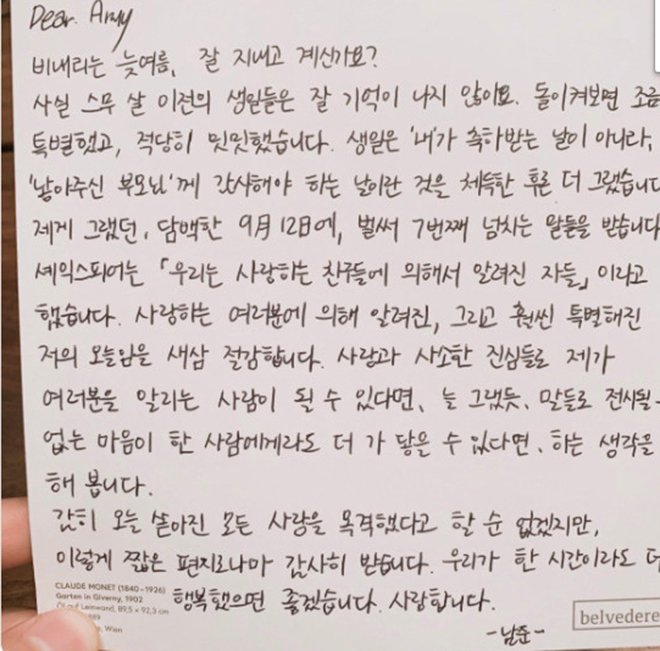 Dear. Army
비내리는 늦여름, 잘 지내고 계신가요?
사실 스무 살 이전의 생일들은 잘 기억이 나지 않아요. 돌이켜보면 조금
특별했고, 적당히 밋밋했습니다. 생일은 '내'가 축하받는 날이 아니라,
'낳아주신 부모님'께 감사해야 하는 날이란 것을 체득한 후론 더 그랬습니다
제게 그랬던, 담백한 9月 12日에, 벌써 7번째 넘치는 말들을 받습니다
셰익스피어는 「우리는 사랑하는 친구들에 의해서 알려진 자들」이라고
했습니다. 사랑하는 여러분에 의해 알려진, 그리고 훨씬 특별해진
저의 오늘임을 새삼 절감합니다. 사랑과 사소한 진심들로 제가
여러분을 알리는 사람이 될 수 있다면, 늘 그랬듯, 말들로 전시될
없는 마음이 한 사람에게라도 더 가 닿을 수 있다면, 하는 생각을
해 봅니다.
감히 오늘 쏟아진 모든 사랑을 목격했다고 할 순 없겠지만,
이렇게 짧은 편지로나마 감사히 받습니다. 우리가 한 시간이라도 더
행복했으면 좋겠습니다. 사랑합니다.
-남준-
CLAUDE MONET (1840–1926)
Garten in Giverny, 1902
Öl auf Leinwand, 89,5 × 92,3 cm
Wien
belvedere